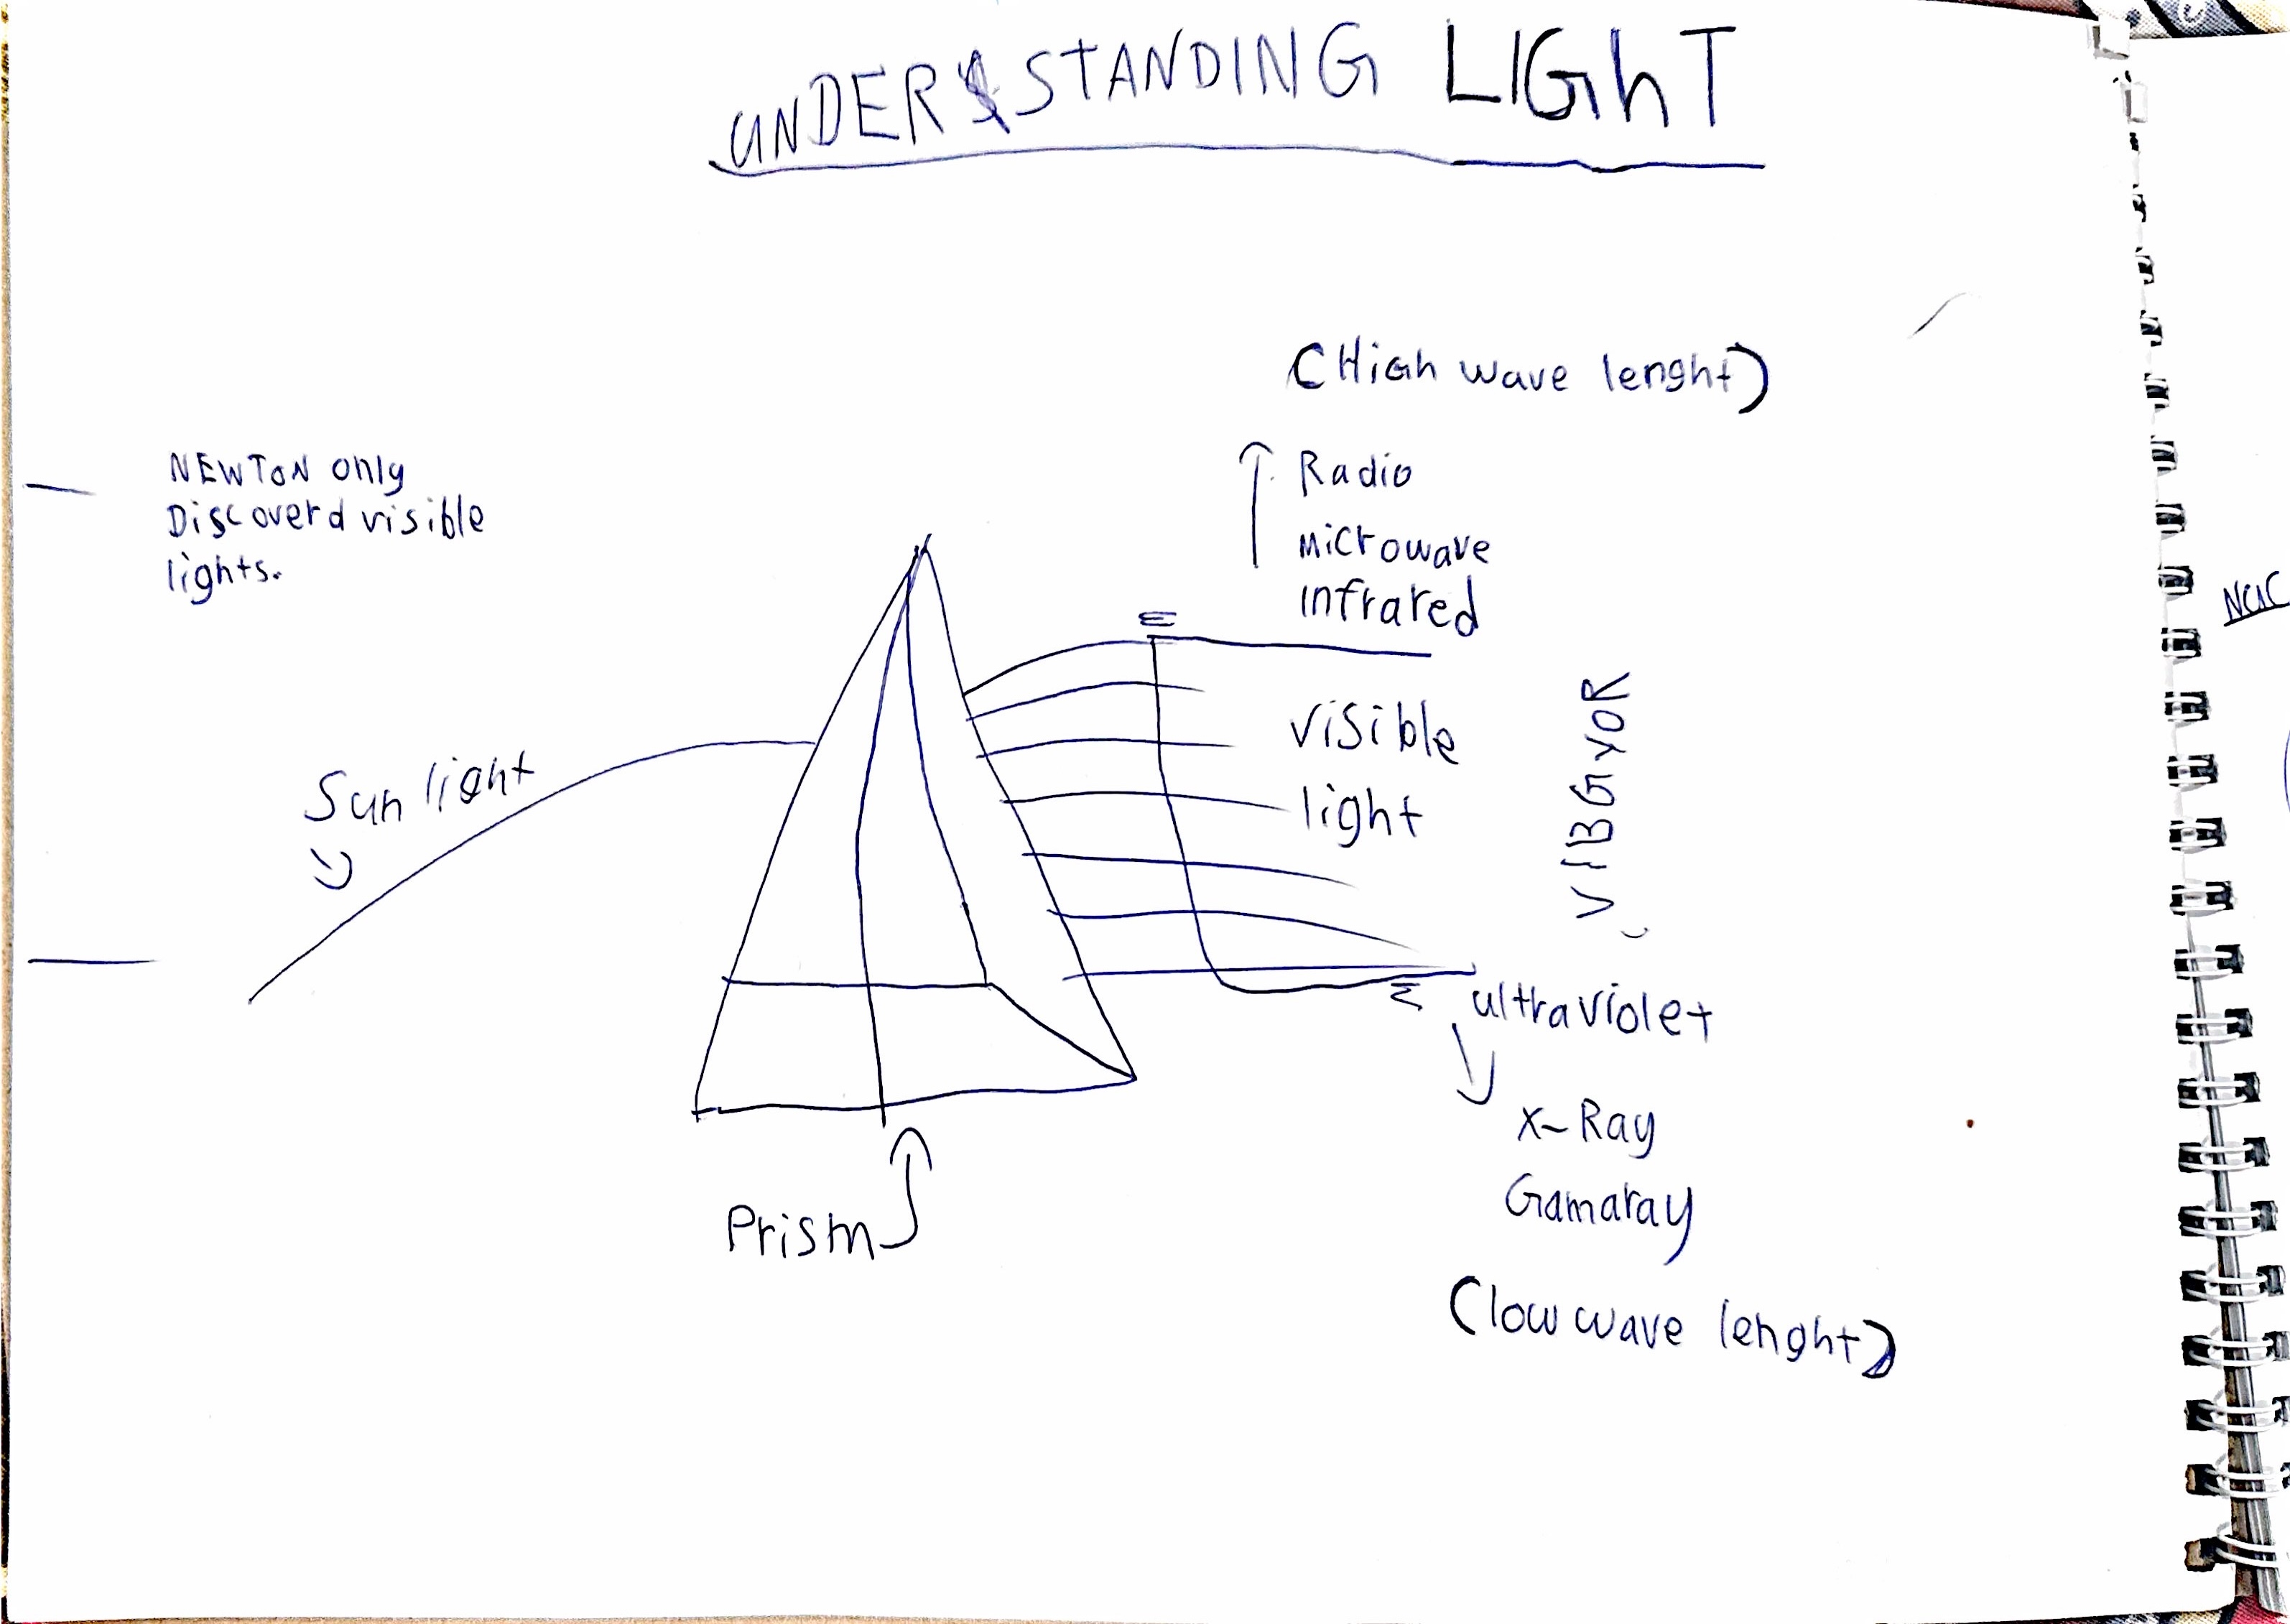 UNDERSTANDING LIGhT
(HiGh wave lenght)
NEWToN only
Discoverd visible
lights.
Radio
Microwave
infrared
visible
light
VIBGYOR
Sun light
ultraviolet
X-Ray
Gamaray
Prism
(low wave lenght)